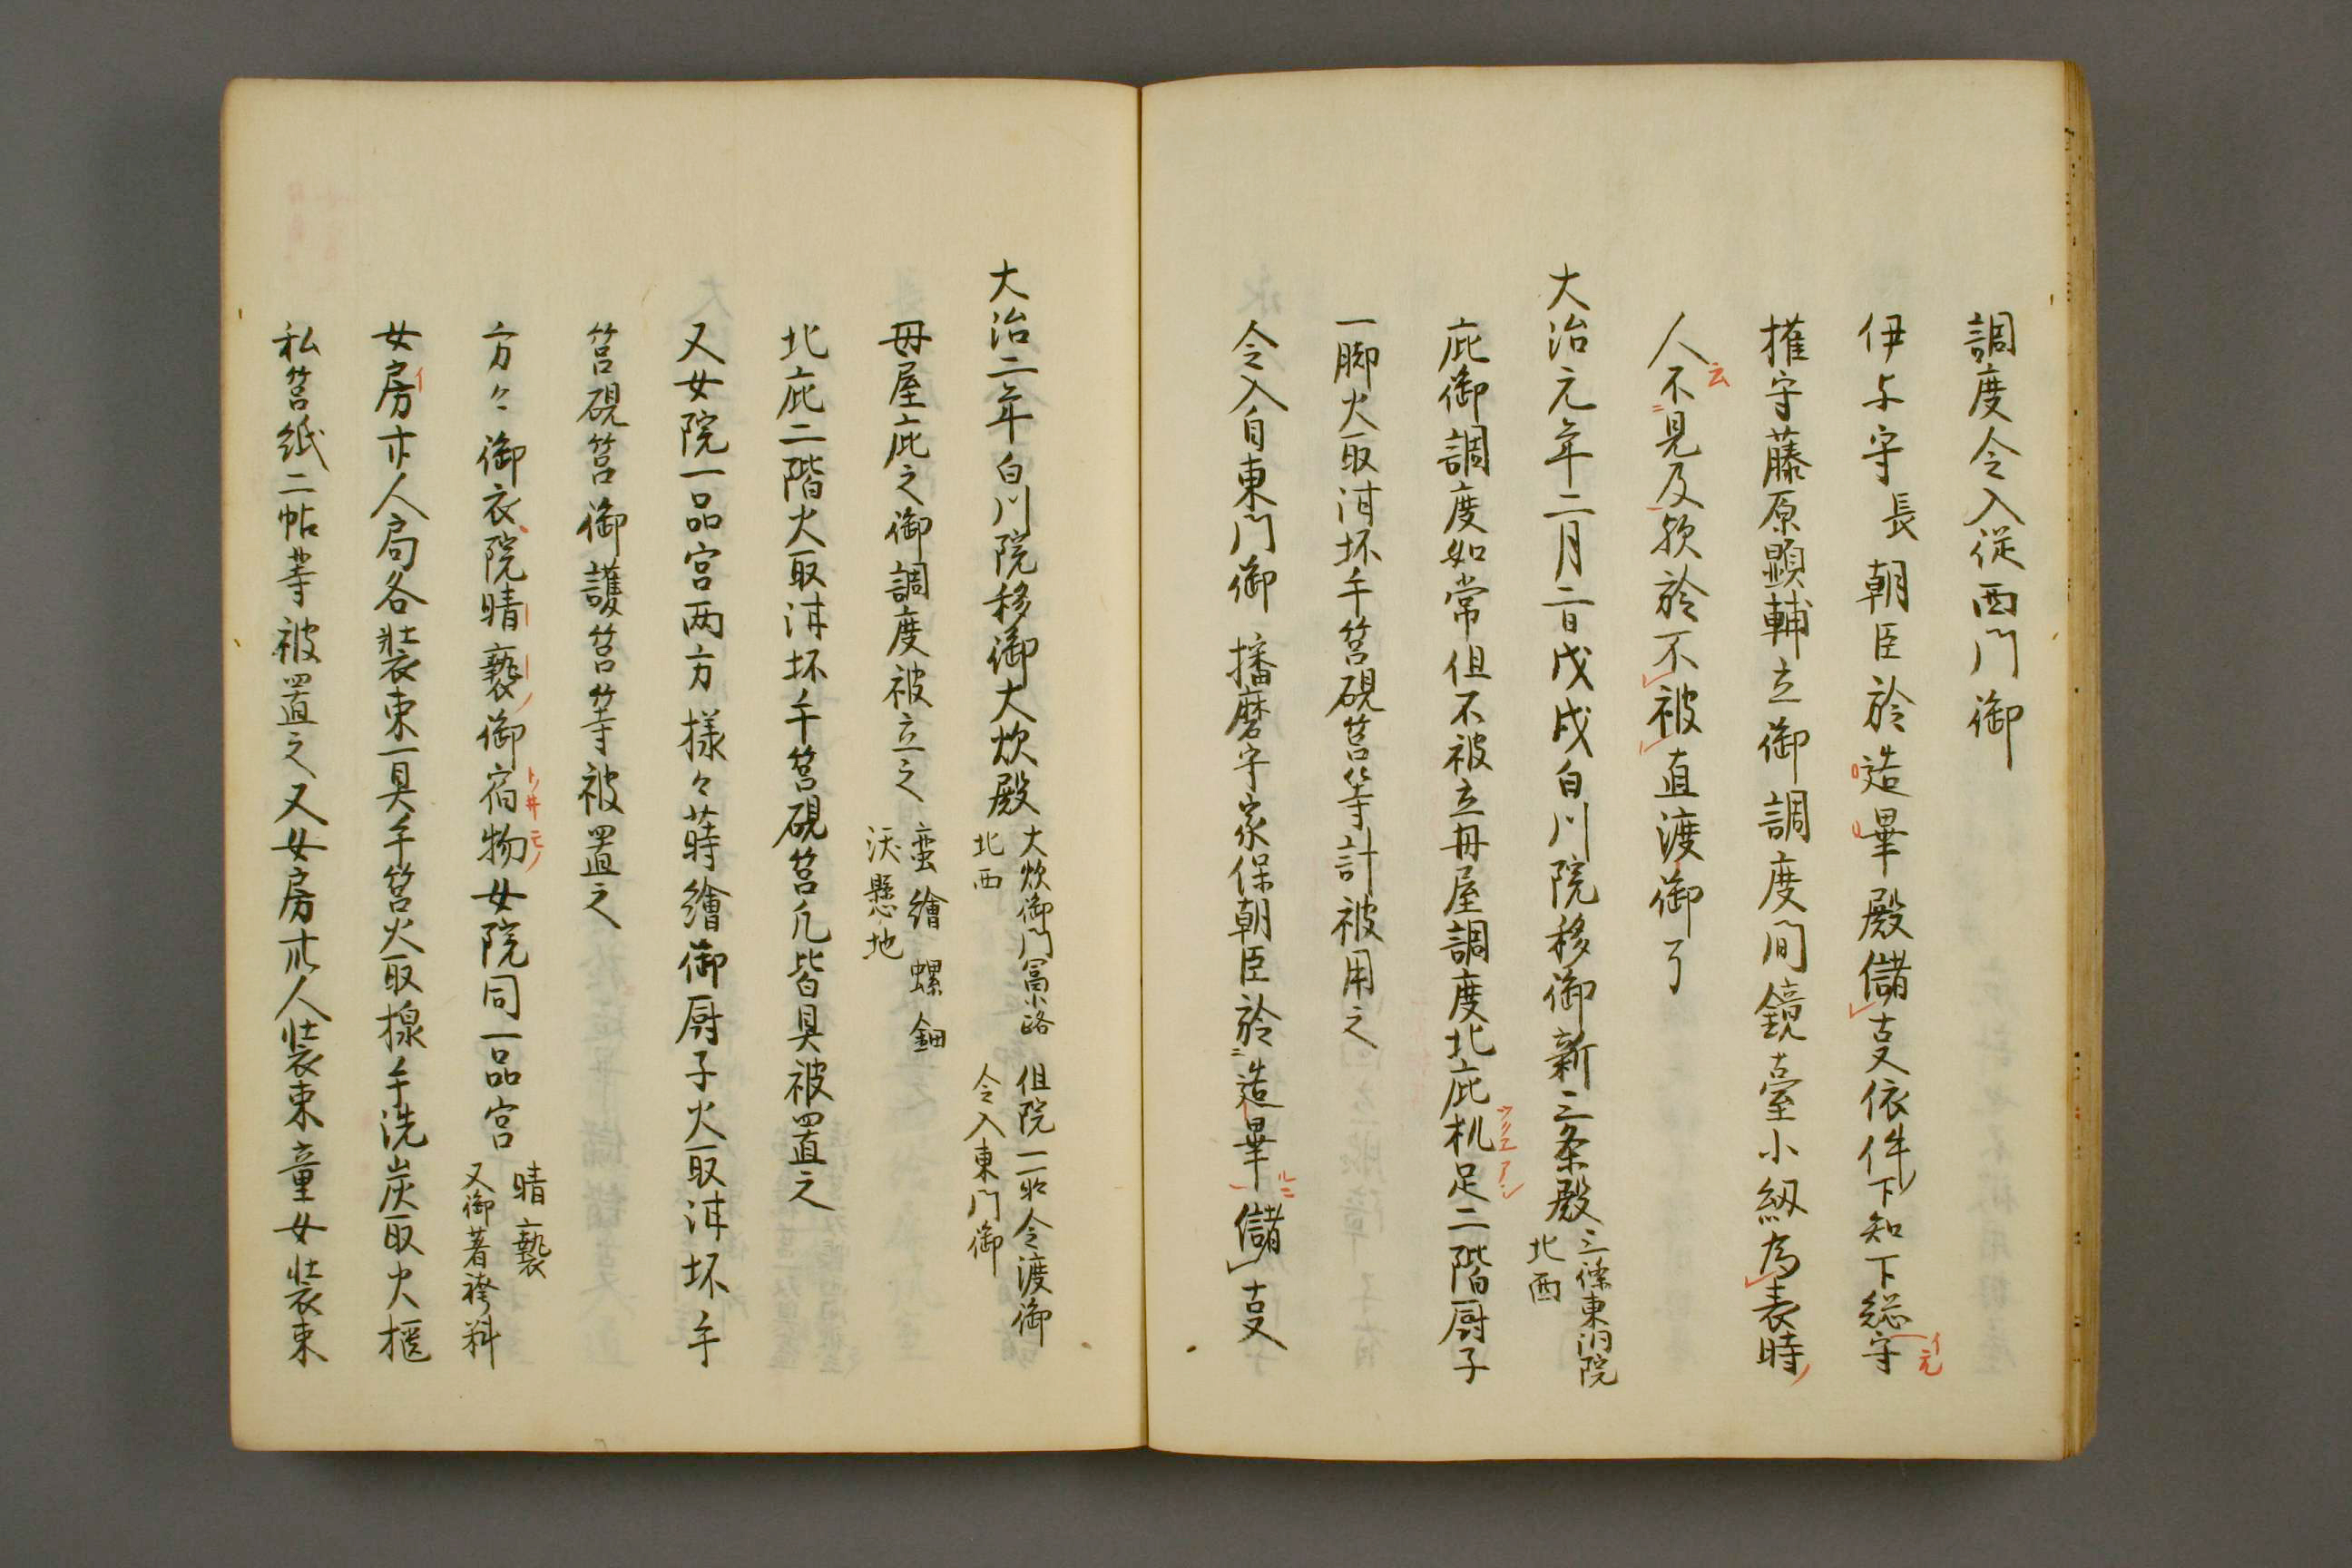 調度令入従西門御
伊与守長朝臣於造畢殿儲㕝依件下知下総守
権守藤原顕輔立御調度間鏡臺小釼為表時
人不見及欤於不被直渡御了
大治元年二月二日戊戌白川院移御新三条殿三條東洞院北西
庇御調度如常但不被立母屋調度北庇机足二階厨子
一脚火取泔坏手筥硯筥等計被用之
令入自東門御播磨守家保朝臣於造畢儲㕝
大治二年白川院移御大炊殿大炊御門冨小路北西但院一所令渡御令入東門御
母屋庇之御調度被立之蛮繪螺鈿沃懸地
北庇二階火取泔坏手筥硯筥凡皆具被置之
又女院一品宮两方様々蒔繪御厨子火取泔坏手
筥硯筥御護筥等被置之
方々御衣院晴褻御宿物女院同一品宮晴褻又御著袴料
女房廿人局各装束一具手筥火取楾手洗炭取火桶
私筥紙二帖等被置之又女房卅人装束童女装束